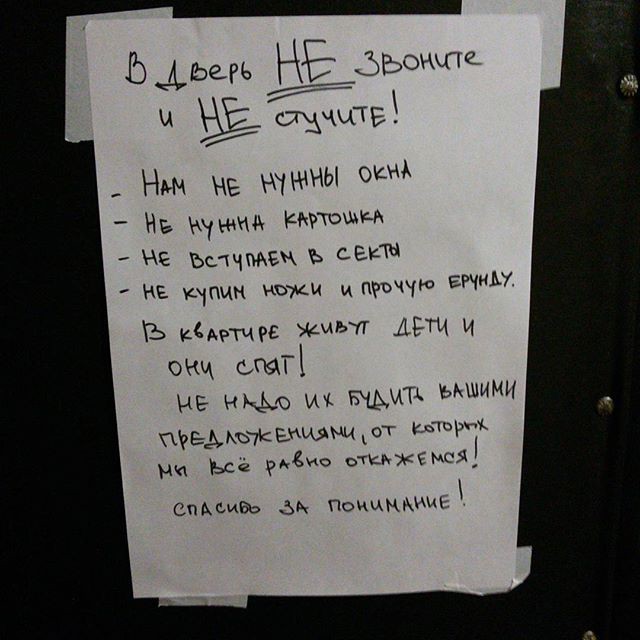 В дверь НЕ звоните
и НЕ стучите!
- Нам не нужны окна
- Не нужна картошка
- не вступаем в секты
- не купим ножи и прочую ерунду.
В квартире живут дети и
они спят!
не надо их будить вашими
предложениями, от которых
мы всё равно откажемся!
спасибо за понимание!